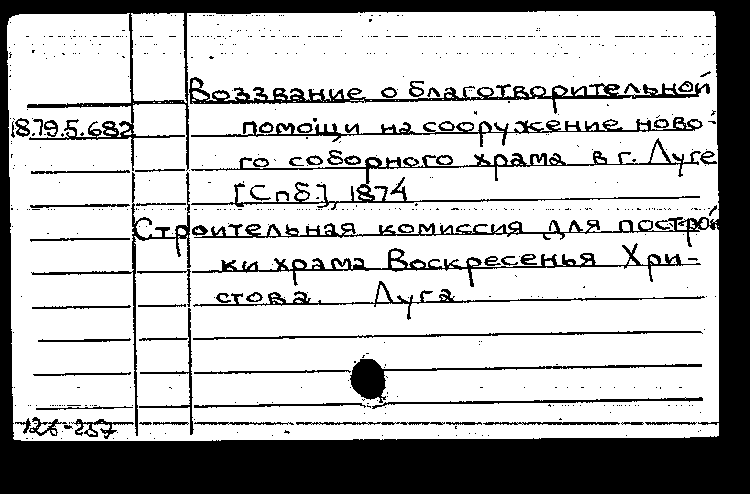 Воззвание о благотворительной
18.79.5.682 помощи на сооружение ново-
го соборного храма в г. Луге
[Спб.], 1874
Строительная комиссия для построй
ки храма Воскресенья Хри-
стова. Луга
126-257